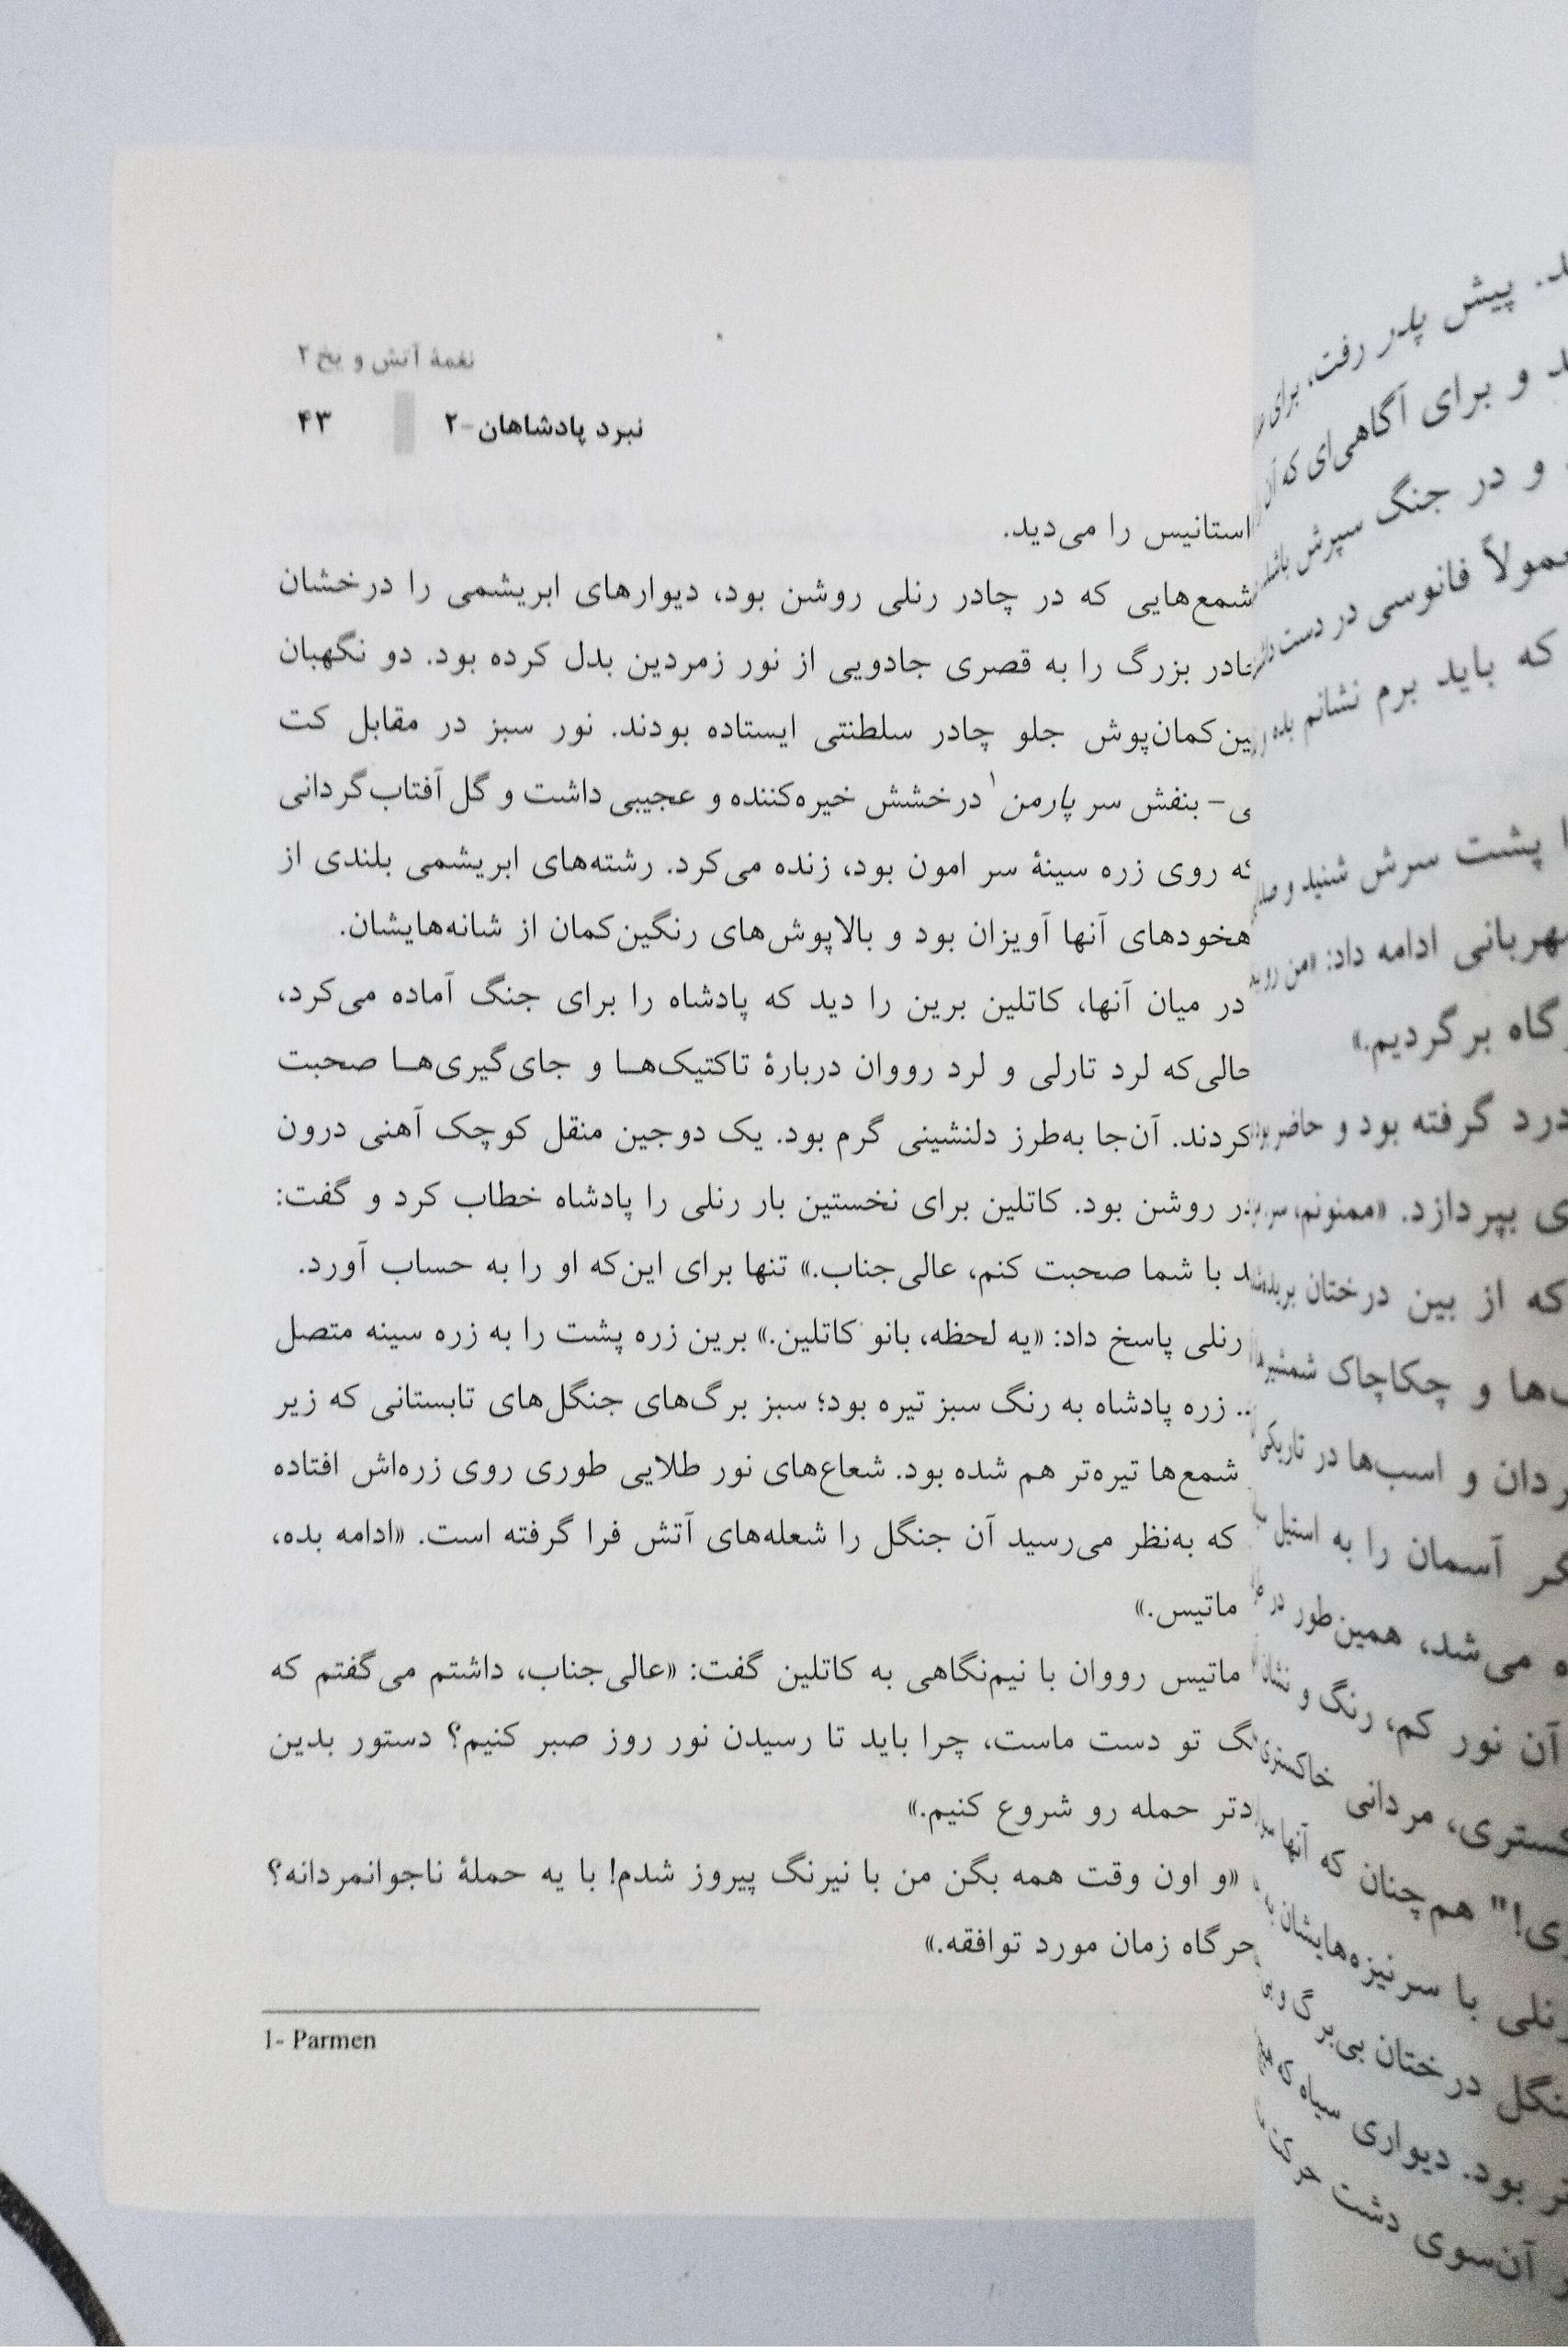 نغمهٔ آتش و یخ ۲
نبرد پادشاهان-۲ ۴۳
استانیس را می‌دید.
شمع‌هایی که در چادر رنلی روشن بود، دیوارهای ابریشمی را درخشان
بزرگ را به قصری جادویی از نور زمردین بدل کرده بود. دو نگهبان
جلو چادر سلطنتی ایستاده بودند. نور سبز در مقابل کت
بنفش سر پارمن۱ درخشش خیره‌کننده و عجیبی داشت و گل آفتاب‌گردانی
روی زره سینهٔ سر امون بود، زنده می‌کرد. رشته‌های ابریشمی بلندی از
آنها آویزان بود و بالاپوش‌های رنگین‌کمان از شانه‌هایشان.
در میان آنها، کاتلین برین را دید که پادشاه را برای جنگ آماده می‌کرد،
حالی‌که لرد تارلی و لرد رووان دربارهٔ تاکتیک‌هـا و جای‌گیری‌هـا صحبت
کردند. آن‌جا به‌طرز دلنشینی گرم بود. یک دوجین منقل کوچک آهنی درون
روشن بود. کاتلین برای نخستین بار رنلی را پادشاه خطاب کرد و گفت:
با شما صحبت کنم، عالی‌جناب.» تنها برای این‌که او را به حساب آورد.
رنلی پاسخ داد: «یه لحظه، بانو کاتلین.» برین زره پشت را به زره سینه متصل
زره پادشاه به رنگ سبز تیره بود؛ سبز برگ‌های جنگل‌های تابستانی که زیر
شمع‌ها تیره‌تر هم شده بود. شعاع‌های نور طلایی طوری روی زره‌اش افتاده
که به‌نظر می‌رسید آن جنگل را شعله‌های آتش فرا گرفته است. «ادامه بده،
ماتیس.»
ماتیس رووان با نیم‌نگاهی به کاتلین گفت: «عالی‌جناب، داشتم می‌گفتم که
تو دست ماست، چرا باید تا رسیدن نور روز صبر کنیم؟ دستور بدین
حمله رو شروع کنیم.»
«و اون وقت همه بگن من با نیرنگ پیروز شدم! با یه حملهٔ ناجوانمردانه؟
زمان مورد توافقه.»
1- Parmen
پیش پدر رفت، برای
و برای آگاهی‌ای که
و در جنگ سپرش
فانوسی در دست
که باید برم نشانم بده
پشت سرش شنید و
ادامه داد: «من
برگردیم.»
گرفته بود و حاضر
بپردازد. «ممنونم،
که از بین درختان
و چکاچاک
و اسب‌ها در تاریکی
آسمان را به استیل
می‌شد، همین‌طور در
آن نور کم، رنگ و
مردانی خاکستری
هم‌چنان که آنها
با سرنیزه‌هایشان
درختان بی‌برگ و
بود. دیواری سیاه که
آن‌سوی دشت